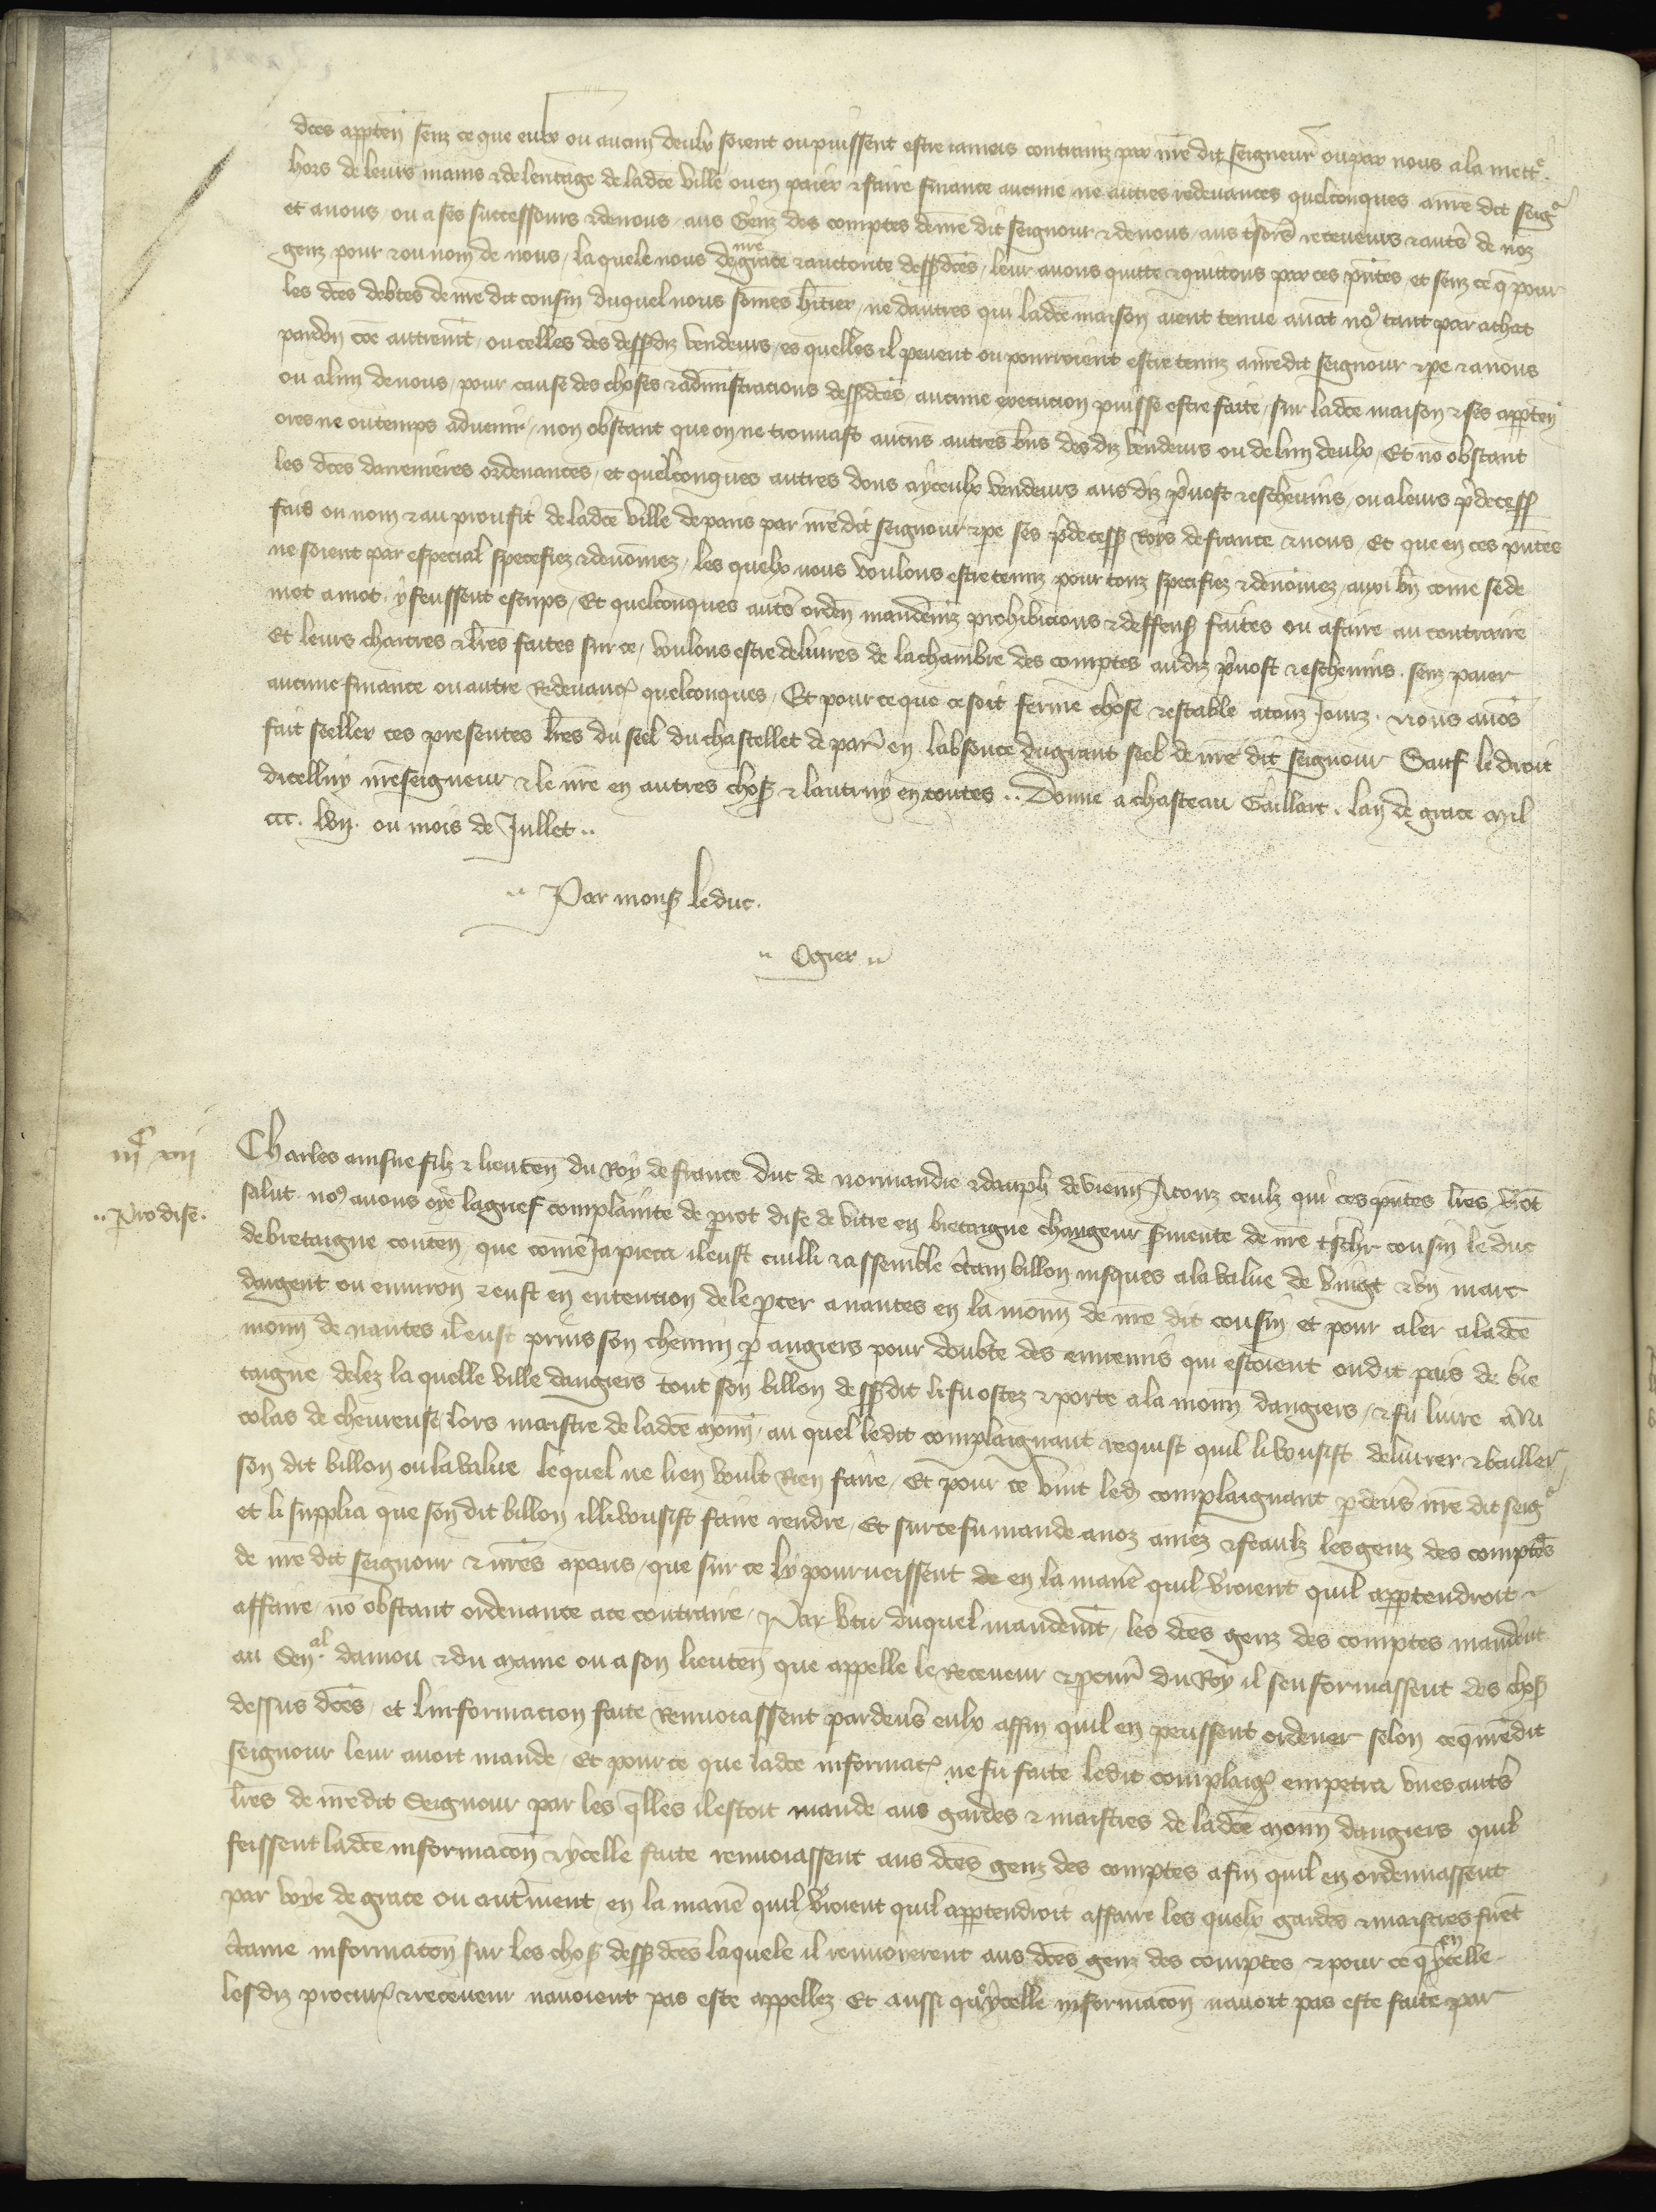 dces apparten senz ce que eulx ou aucun deulx soient ou puissent estre iamais contrainz par nre dit seigneur ou par nous a la mett
hors de leurs mains & de leritage de ladce ville ou en paier & faire finance aucune ne autres redevances quelconques a nre dit seigr
et a nous ou a ses successours & de nous aus Genz des comptes de nre dit seignour & de nous aus tsors receveurs & auts de noz
genz pour & ou nom de nous, la quele nous de nre grace & auctorite dessdces, leur avons quitte & quittons par ces pntes et senz ce q pour
les dces debtes de nre dit cousin duquel nous somes hitier, ne dautres qui ladce maison aient tenue avat no9 tant par achat
par don coe autremt, ou celles des dessdiz vendeurs, es quelles il pevent ou pourroient estre tenuz a nre dit seignour & pe & a nous
ou a lun de nous, pour cause des choses & administracions dessdces, aucune execucion puisse estre faite, sur ladce maison & ses apparten
ores ne ou temps advenir, non obstant que on ne trouvast aucus autres bns des diz vendeurs ou de lun deulx, Et no obstant
les dces darrenieres ordenances, et quelconques autres dons a yceulx vendeurs aus diz pvost & eschevins, ou a leurs pdecess
fais ou nom & au proufit de ladce ville de paris par nre dit seignour & pe ses pdecess Roys de france & nous, Et que en ces pntes
ne soient par especial specefiez & denomez, les quelx nous voulons estre tenuz pour touz specifiez & denomez, auxi bn come se de
mot a mot y feussent escrips, Et quelconques auts orden mandemz prohibicions & deffens faites ou a faire au contraire
Et leurs chartres & lres faites sur ce, voulons estre delivres de la chambre des comptes audiz pvost & eschevins, senz paier
aucune finance ou autre Redevanc quelconques, Et pour ce que ce soit ferme chose & estable a touz Jourz. Nous avos
fait seeller ces presentes lres du seel du chastellet de paris en labsence du grant seel de nre dit seignour Sauf le droit
dicelluy nre seigneur & le nre en autres chos & lautruy en toutes .. Donne a chasteau Gaillart. lan de grace mil
ccc. lvij. ou mois de Jullet ..
.. Par mons le duc.
.. Ogier ..
iijc xvij
Charles ainsne filz & lieuten du Roy de france Duc de normandie & dauph de vienn A touz ceulz qui ces pntes lres vrot
.. Pro dise.
salut no9 avons oye la grief complainte de perot dise de vitre en bretaigne changeur smente de nre tschr cousin le duc
de bretaigne conten que come Ja pieca il eust cuilli & assemble ctain billon iusques a la value de vingt & un marc
dargent ou environ & eust en entencion de le pter a nantes en la monn de nre dit cousin et pour aler a ladce
monn de nantes il eust prins son chemin p angiers pour doubte des ennemis qui estoient ou dit pais de bre
taigne delez la quelle ville dangiers tout son billon dessdit li fu ostez & porte a la monn dangiers, & fu livre a Ni
colas de chevreuse lors maistre de ladce monn, au quel ledit complaignant requist quil li vousist delivrer & bailler
son dit billon ou la value le quel ne lien voult Rien faire, Et pour ce vint led complaignant p devs nre dit seigr
et li supplia que son dit billon illi vousist faire rendre, Et sur ce fu mande a noz amez & feaulz les genz des comptes
de nre dit seignour & nres a paris, que sur ce ly pourveissent de en la mane quil vroient quil appartendroit a
affaire no obstant ordenance a ce contraire, Par vtu duquel mandemt les dces genz des comptes mandent
au Senal danjou & du Maine ou a son lieuten que appelle le Receveur & pcur du Roy il senformassent des chos
dessus dces, et linformacion faite Renvoiassent pardevs eulx affin quil en peussent ordener selon ce q nre dit
seignour leur avoit mande, Et pour ce que ladce informac ne fu faite ledit complaig empetra unes auts
lres de nre dit Seignour par les qlles il estoit mande aus gardes & maistres de ladce monn dangiers quil
feissent ladce informacon & ycelle faite renvoiassent aus dces genz des comptes afin quil en ordenassent
par voye de grace ou autment, en la mane quil vroient quil appartendroit affaire les quelx gardes & maistres firet
ctaine informacon sur les chos dess dces laquele il renvoierent aus dces genz des comptes & pour ce q en ycelle
les diz procur & receveur navoient pas este appellez Et aussi q ycelle informacon navoit pas este faite par